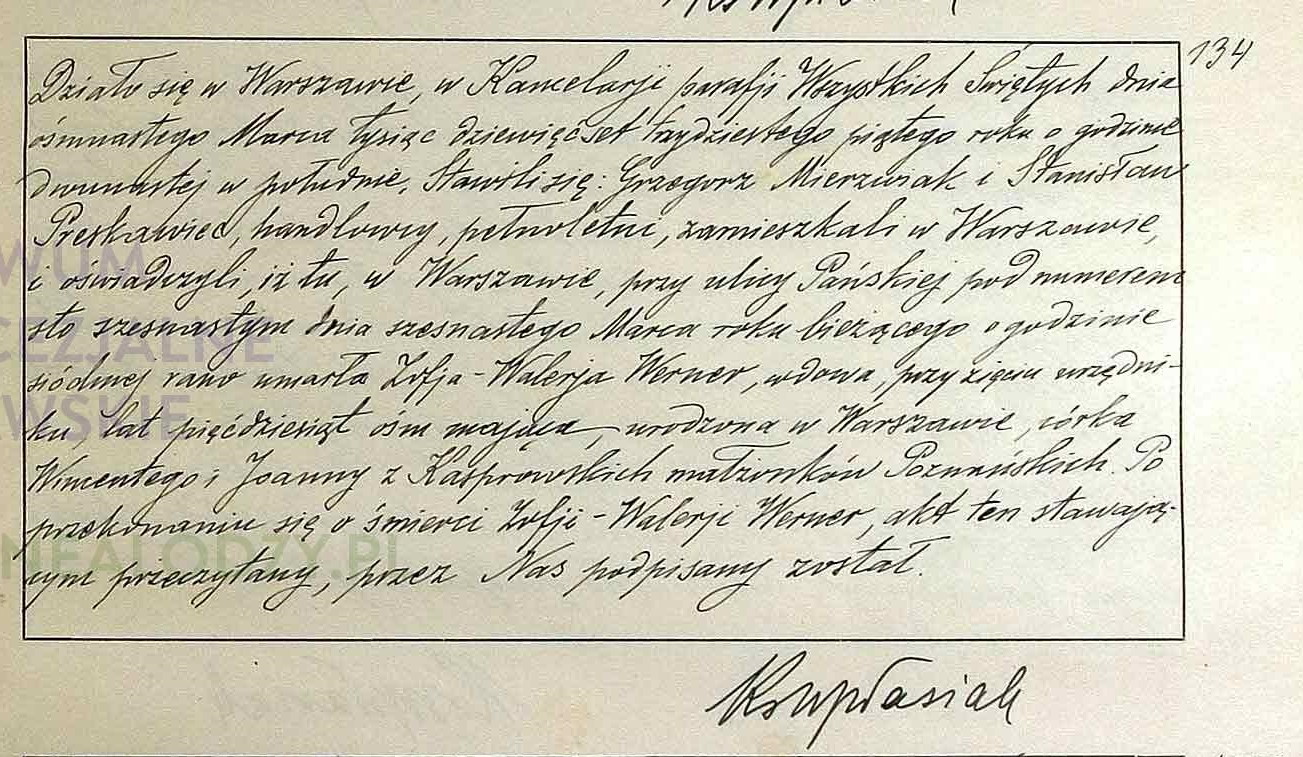 134
Działo się w Warszawie, w Kancelarji parafji Wszystkich Świętych dnia
ośmnastego Marca tysiąc dziewięćset trzydziestego piątego roku o godzinie
dwunastej w południe. Stawili się: Grzegorz Mierzwiak i Stanisław
handlowcy, pełnoletni, zamieszkali w Warszawie,
i oświadczyli, iż tu, w Warszawie, przy ulicy Pańskiej pod numerem
sto szesnastym dnia szesnastego Marca roku bieżącego o godzinie
siódmej rano umarła Zofja-Walerja Werner, wdowa, przy zięciu urzędni-
ku, lat pięćdziesiąt ośm mająca, urodzona w Warszawie, córka
Wincentego i Joanny z Kasprowskich małżonków Poznańskich. Po
przekonaniu się o śmierci Zofji-Walerji Werner, akt ten stawają-
cym przeczytany, przez Nas podpisany został.
WUM
CEZJALNE
WSKIE
NEALODZY.PL